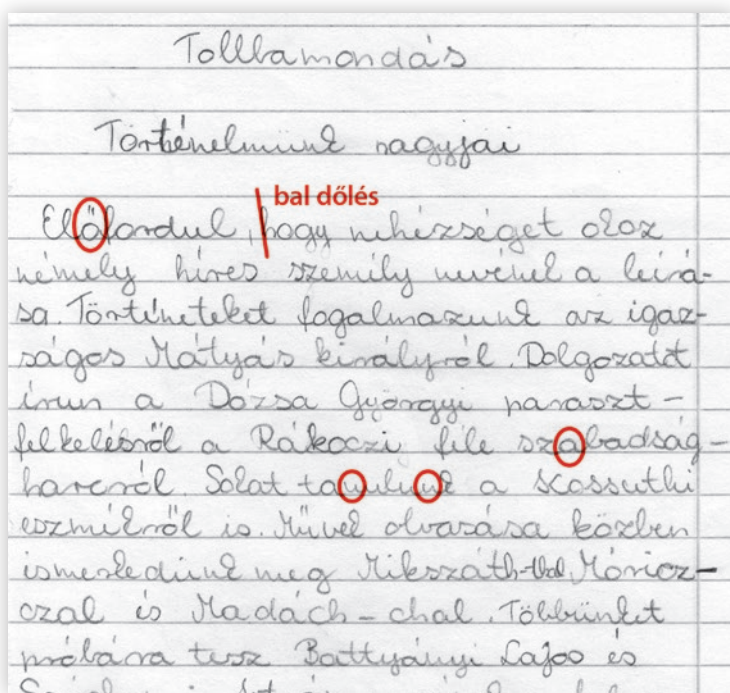 Tollbamondás
Történelmünk nagyjai
bal dőlés
Előfordul, hogy nehézséget okoz
némely híres személy nevének a leírá-
sa. Történeteket fogalmazunk az igaz-
ságos Mátyás királyról. Dolgozatot
írun a Dózsa Györgyi paraszt-
felkelésről a Rákoczi féle szabadság-
harcról. Sokat tanulunk a Kossuthi
eszmékről is. Művek olvasása közben
ismerkedünk meg Mikszáth-thal, Móricz-
czal és Madách-chal. Többünket
próbára tesz Battyányi Lajos és